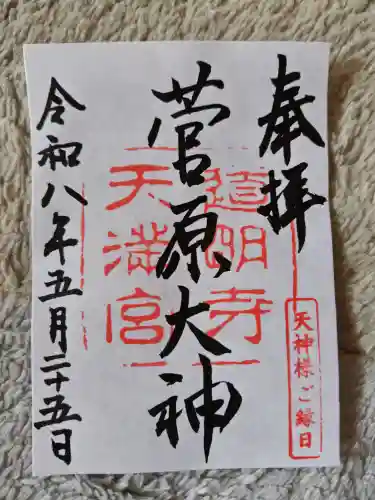 奉拝
道明寺
天満宮
菅原大神
天神様ご縁日
令和八年五月二十五日